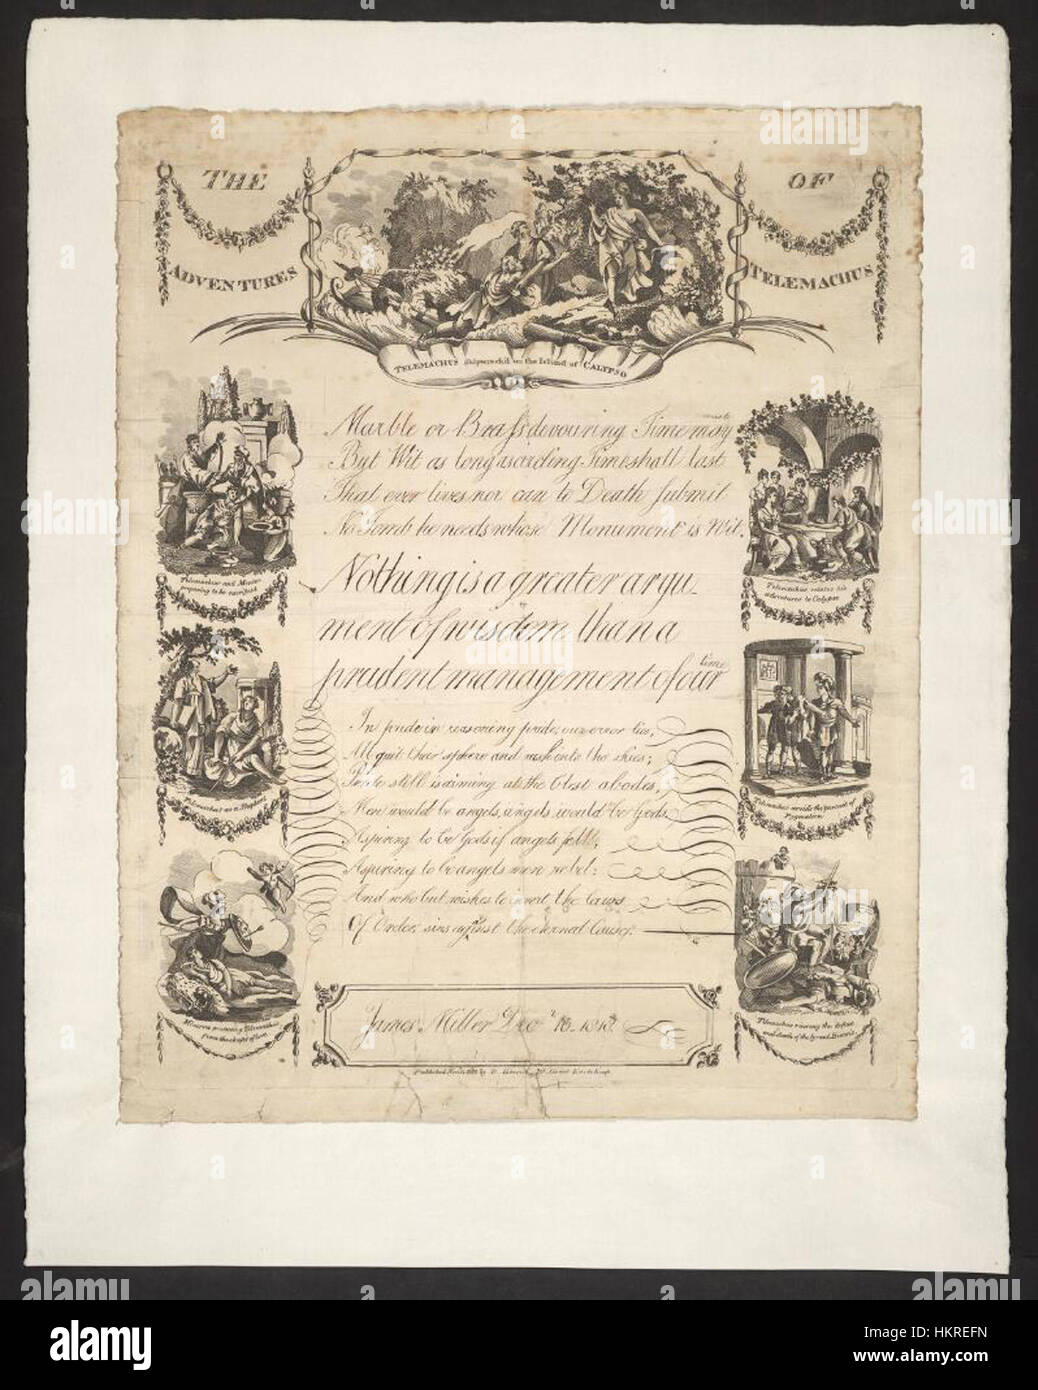 THE
OF
ADVENTURES
TELEMACHUS
TELEMACHUS Shipwreck'd on the Island of CALYPSO
Marble or Brass devouring Time may waste
But Wit as long as rolling Time shall last
That ever lives nor can to Death submit
No Tomb he needs whose Monument is Wit.
Nothing is a greater argu-
ment of wisdom than a
prudent management of our time
In pride in reasoning pride, our error lies,
All quit their sphere and rush into the skies;
Pride still is aiming at the blest abodes,
Men would be angels, angels would be Gods.
Aspiring to be Gods if angels fell,
Aspiring to be angels men rebel:
And who but wishes to invert the laws
Of Order, sins against the eternal Cause.
James Miller Dec
Telemachus and Mentor
preparing to be sacrificed
Telemachus as a Shepherd
Minerva protecting Telemachus
from the shafts of love
Telemachus relates his
adventures to Calypso
Telemachus avoids the pursuit of
Pygmalion
Telemachus
and death of the tyrant
Published
by
alamy
Image ID: HKREFN
www.alamy.com